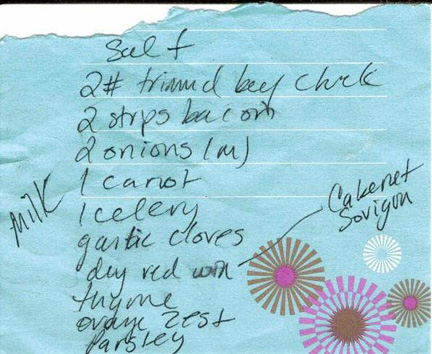 Salt
2# trimmd beef chuck
2 strips bacon
2 onions (m)
1 carrot
Milk
1 celery
garlic cloves
Cabernet
Sovigon
dry red win
thyme
orange zest
Parsley